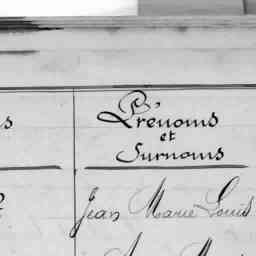 Prénoms
et
Surnoms
Jean Marie Louis